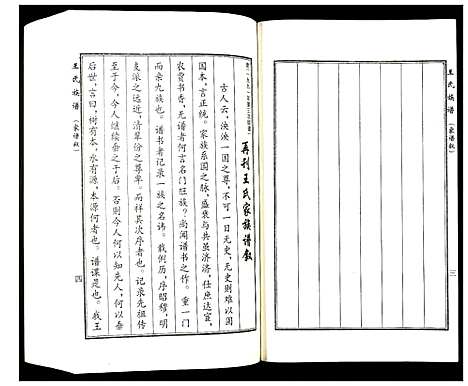 王氏族谱
（家谱叙）
三
再刊王氏家族谱叙
古人云，泱泱一国之尊，不可一日无史，无史则难以固
国本，言正统。家族系国之脉，盛衰与共，济济，仕庶达宦，
农贾书香，无谱者何言名门旺族？尚闻谱书之作。重一门
而亲九族也。谱书者记录一族之名讳。载例历，昭昭穆，明
支派之远近，清辈份之尊卑。而祥其次序者也。记录先祖传
至于今，今人继续垂之于后。否则今人何以知先人，何以垂
后世，言曰，树有本，水有源，本源何者也。谱谍是也。我王
王氏族谱
（家谱叙）
四